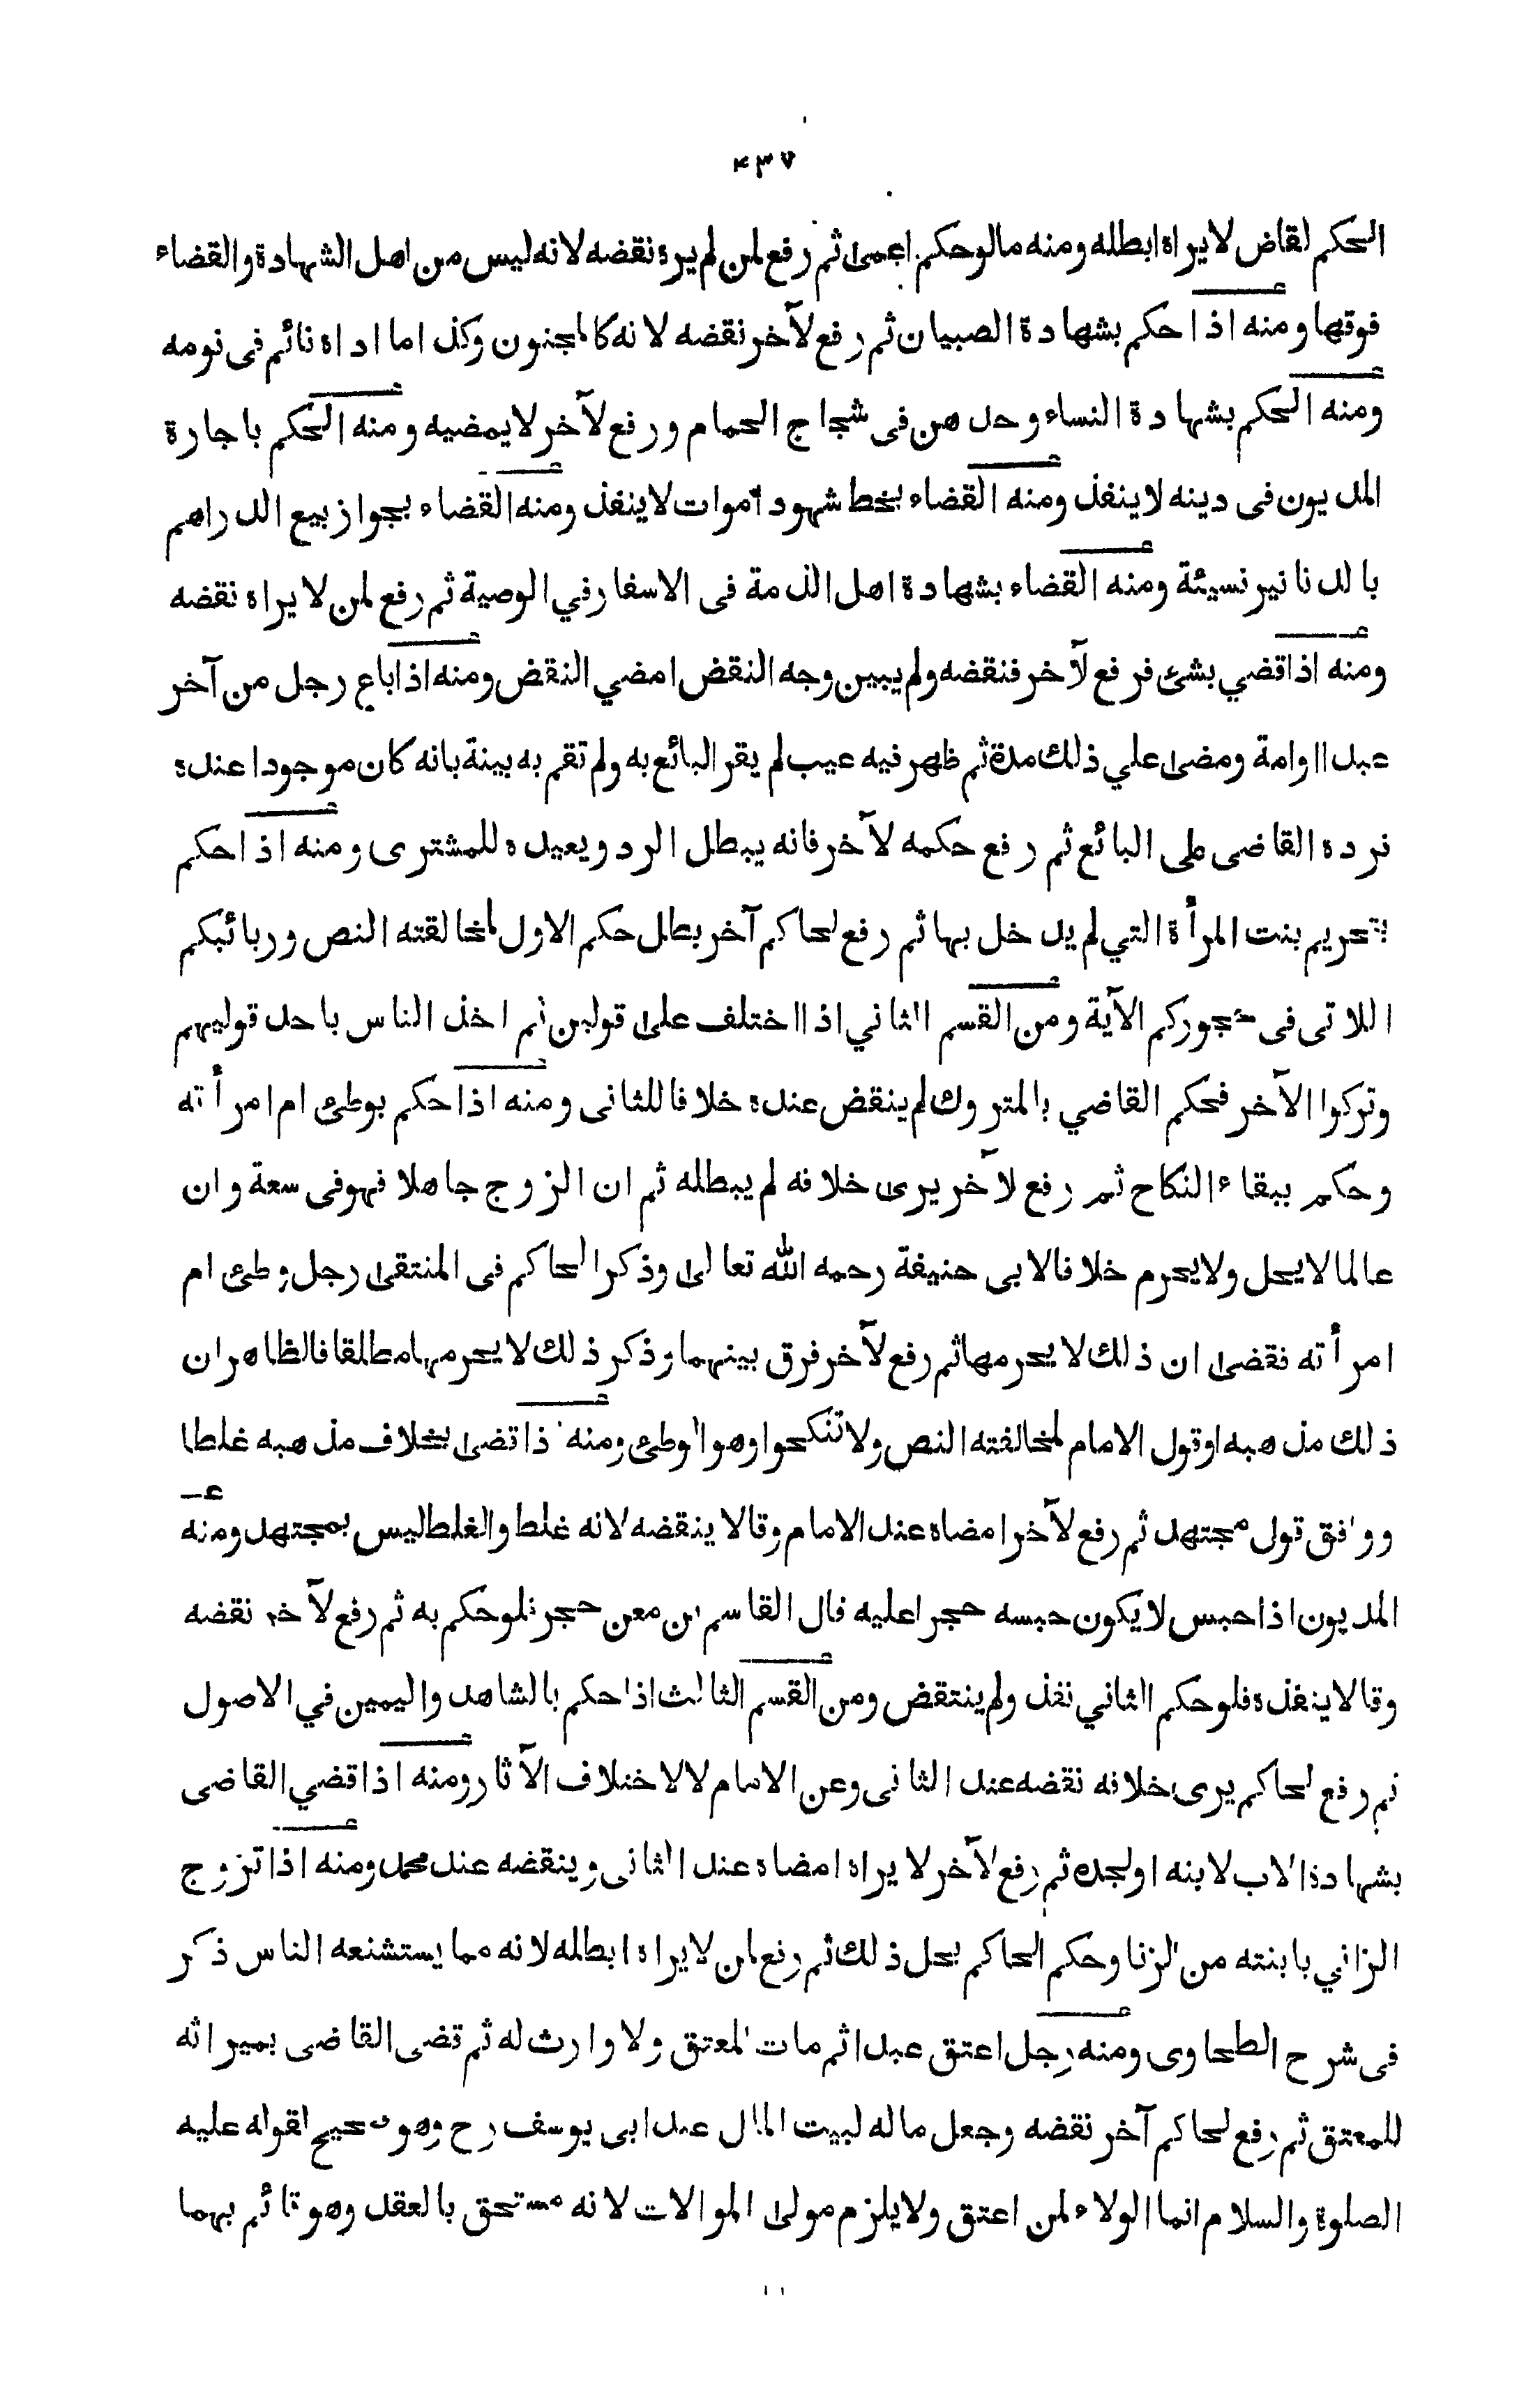 ۴۳۷
الحكم لقاض لا يراه ابطله ومنه ما لو حكم اعمى ثم رفع لمن لم يره نقضه لانه ليس من اهل الشهادة والقضاء
فوقها ومنه اذا حكم بشهادة الصبيان ثم رفع لآخر نقضه لانه كالمجنون وكذا ما اداه نائم فى نومه
ومنه الحكم بشهادة النساء وحدهن فى شجاج الحمام ورفع لآخر لا يمضيه ومنه الحكم باجارة
المديون فى دينه لا ينفذ ومنه القضاء بخط شهود اموات لا ينفذ ومنه القضاء بجواز بيع الدراهم
بالدنانير نسيئة ومنه القضاء بشهادة اهل الذمة فى الاسفار في الوصية ثم رفع لمن لا يراه نقضه
ومنه اذا قضي بشئ فرفع لآخر فنقضه ولم يبين وجه النقض امضي النقض ومنه اذا باع رجل من آخر
عبدا او امة ومضى علي ذلك مدة ثم ظهر فيه عيب لم يقر البائع به ولم تقم به بينة بانه كان موجودا عنده
فرده القاضى على البائع ثم رفع حكمه لآخر فانه يبطل الرد ويعيده للمشترى ومنه اذا حكم
بتحريم بنت المرأة التي لم يدخل بها ثم رفع لحاكم آخر بطل حكم الاول لمخالفته النص وربائبكم
اللاتى فى حجوركم الآية ومن القسم الثاني اذا اختلف على قولين ثم اخذ الناس باحد قوليهم
وتركوا الآخر فحكم القاضي بالمتروك لم ينقض عنده خلافا للثانى ومنه اذا حكم بوطئ ام امرأته
وحكم ببقاء النكاح ثم رفع لآخر يرى خلافه لم يبطله ثم ان الزوج جاهلا فهو فى سعة وان
عالما لا يحل ولا يحرم خلافا لابى حنيفة رحمه الله تعالى وذكر الحاكم فى المنتقى رجل وطئ ام
امرأته فقضى ان ذلك لا يحرمها ثم رفع لآخر فرق بينهما وذكر ذلك لا يحرمها مطلقا فالظاهر ان
ذلك مذهبه او قول الامام لمخالفته النص ولا تنكحوا وهو الوطئ ومنه اذا قضى بخلاف مذهبه غلطا
ووافق قول مجتهد ثم رفع لآخر امضاه عند الامام وقالا ينقضه لانه غلط والغلط ليس بمجتهد ومنه
المديون اذا حبس لا يكون حبسه حجرا عليه قال القاسم بن معن حجر فلو حكم به ثم رفع لآخر نقضه
وقالا ينفذه فلو حكم الثاني نفذ ولم ينتقض ومن القسم الثالث اذا حكم بالشاهد واليمين في الاصول
ثم رفع لحاكم يرى خلافه نقضه عند الثانى وعن الامام لا لاختلاف الآثار ومنه اذا قضي القاضى
بشهادة الاب لابنه او لجده ثم رفع لآخر لا يراه امضاه عند الثانى وينقضه عند محمد ومنه اذا تزوج
الزاني بابنته من الزنا وحكم الحاكم بحل ذلك ثم رفع لمن لا يراه ابطله لانه مما يستشنعه الناس ذكر
فى شرح الطحاوى ومنه رجل اعتق عبدا ثم مات المعتق ولا وارث له ثم قضى القاضى بميراثه
للمعتق ثم رفع لحاكم آخر نقضه وجعل ماله لبيت المال عند ابى يوسف رح وهو صحيح لقوله عليه
الصلوة والسلام انما الولاء لمن اعتق ولا يلزم مولى الموالات لانه مستحق بالعقد وهو قائم بهما